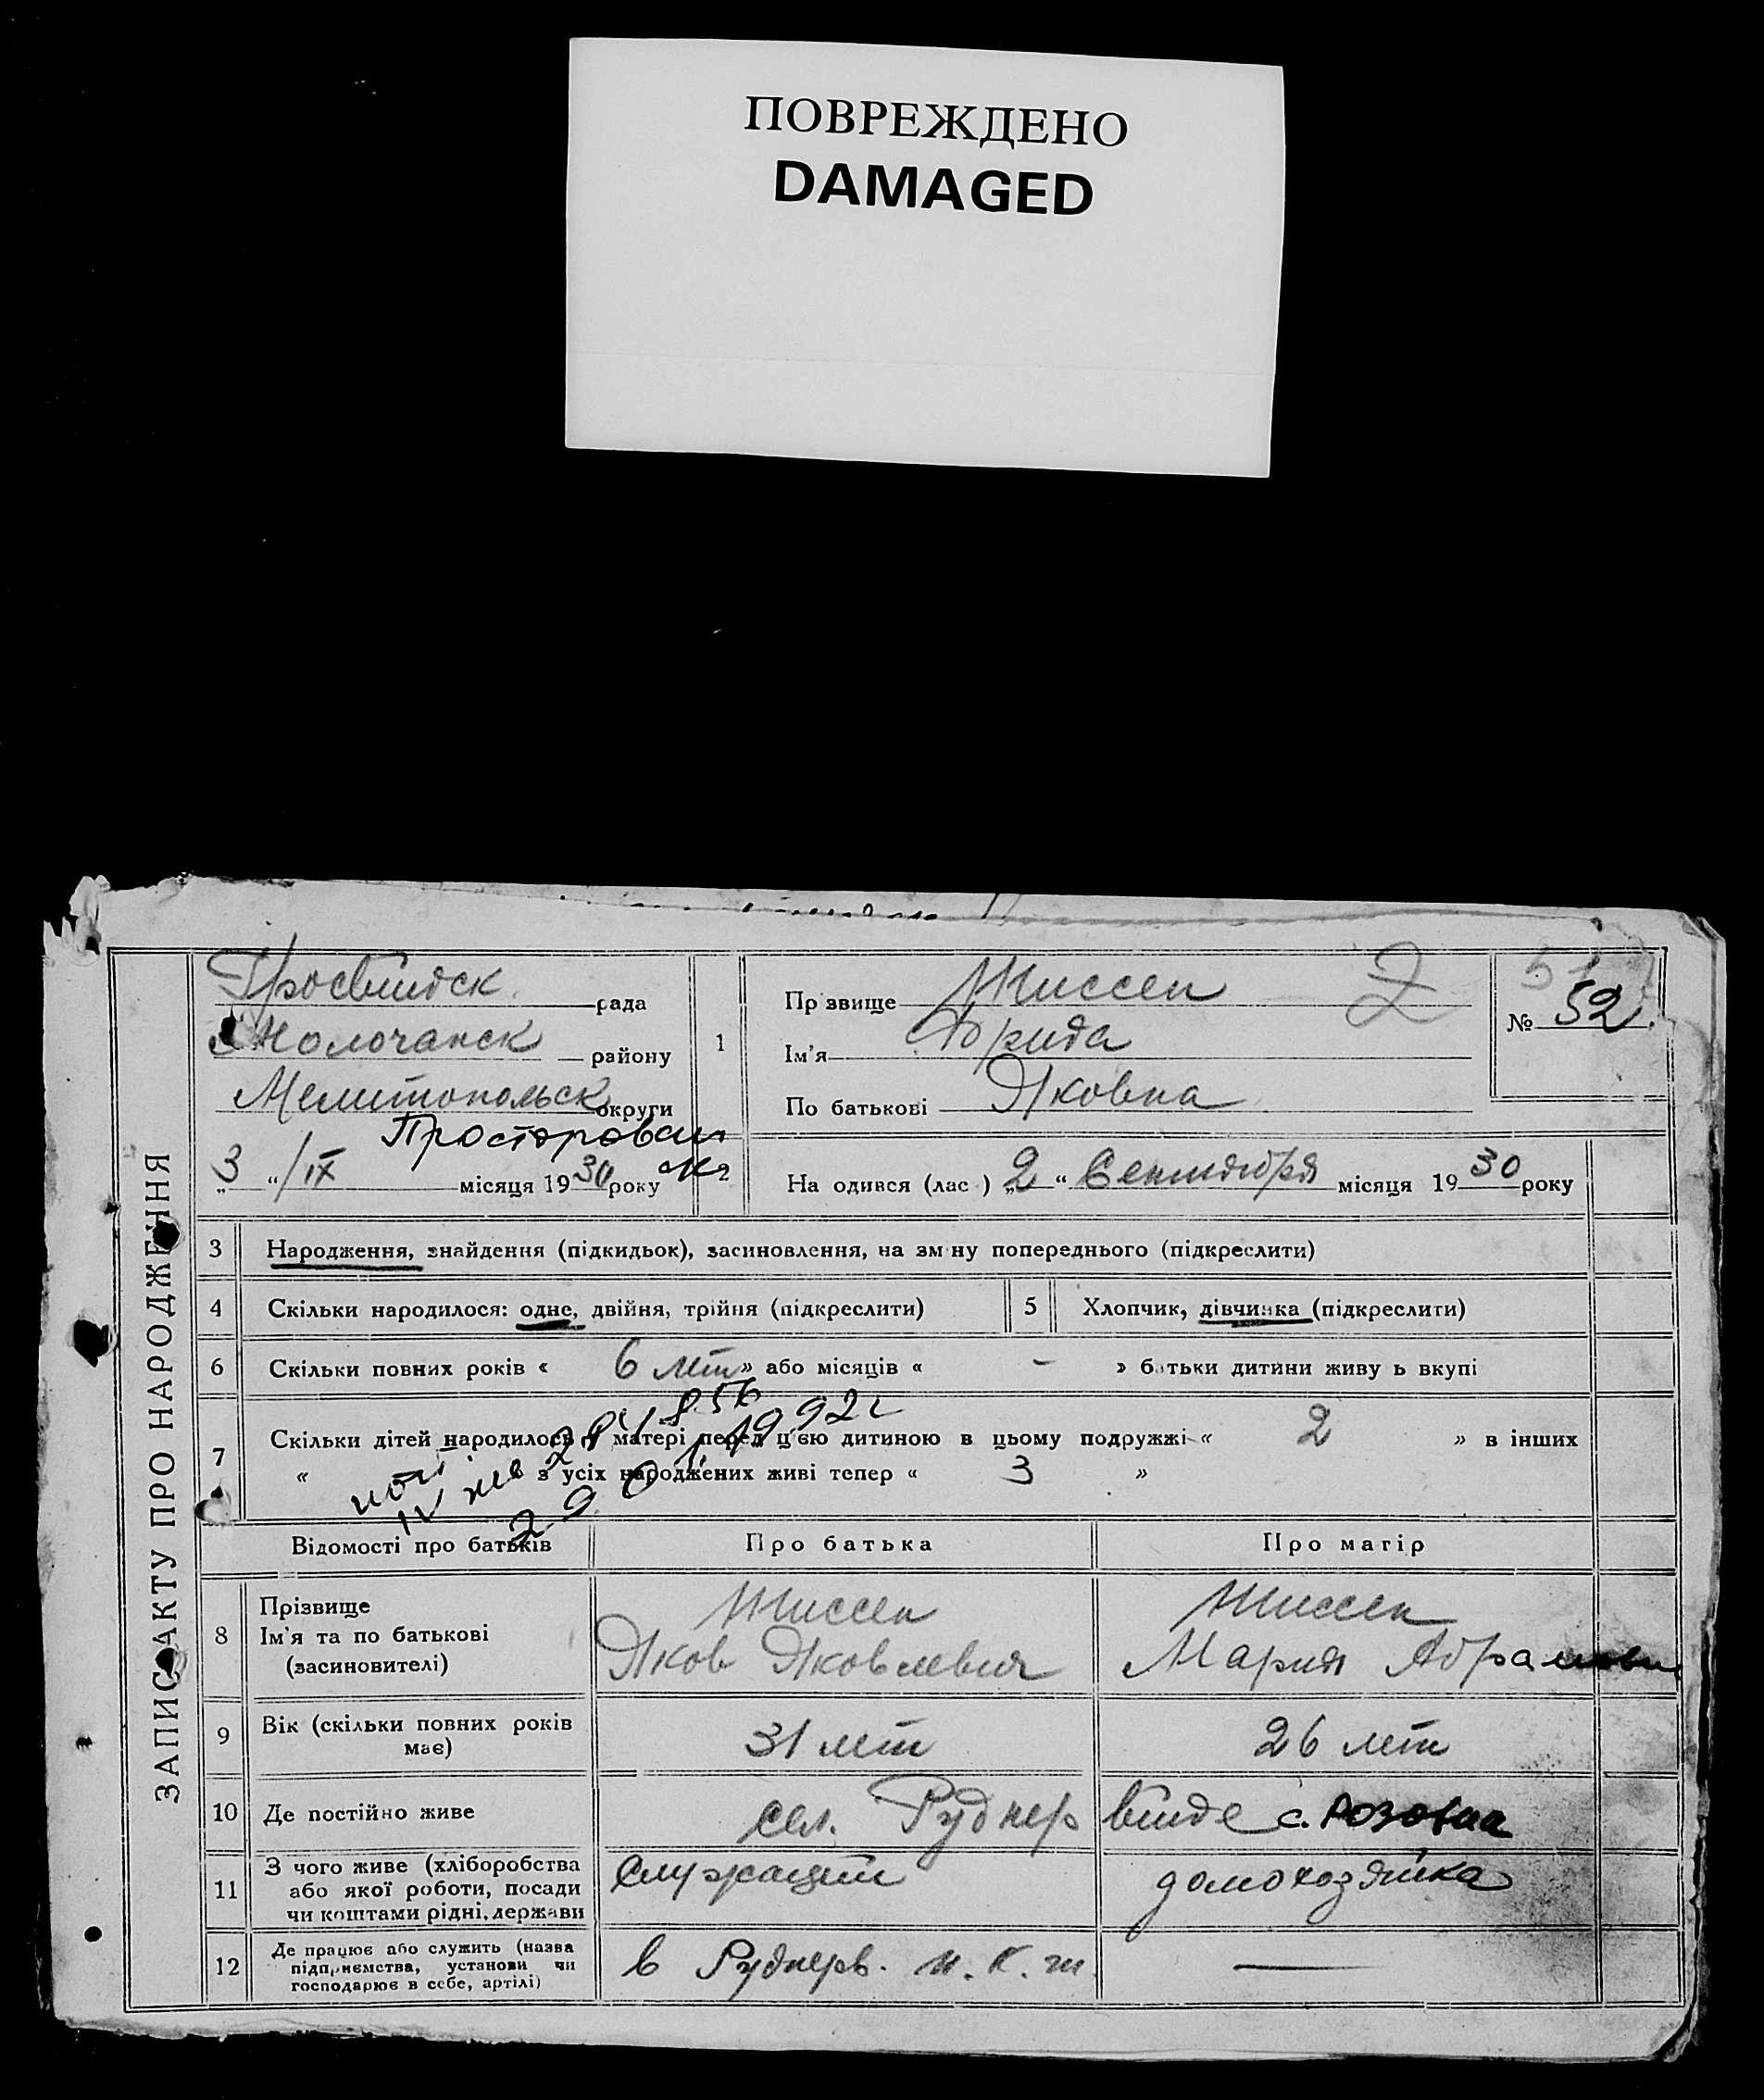 ПОВРЕЖДЕНО
DAMAGED
ЗАПИС АКТУ ПРО НАРОДЖЕННЯ
рада
Молочанск району
Мелитопольск округи
"3"/IX місяця 1930 року
1
Прізвище Тиссен 2
Ім'я Фрида
По батькові Яковна
№ 52
2
На одився (лас ) „2" Сентября місяця 1930 року
3 Народження, знайдення (підкидьок), засиновлення, на зм ну попереднього (підкреслити)
4 Скільки народилося: одне, двійня, трійня (підкреслити)
5 Хлопчик, дівчинка (підкреслити)
6 Скільки повних років « 6 лет » або місяців « - » батьки дитини живу ь вкупі
7 Скільки дітей народилось у матері перед цією дитиною в цьому подружжі « 2 » в інших
« » з усіх народжених живі тепер « 3 »
Відомості про батьків Про батька Про матір
8 Прізвище Тиссен Тиссен
Ім'я та по батькові Яков Яковлевич Мария Абрамовна
(засиновителі)
9 Вік (скільки повних років має) 31 лет 26 лет
10 Де постійно живе сел. Руднервейде с. Розовка
11 З чого живе (хліборобства або якої роботи, посади чи коштами рідні, держави служащий домохозяйка
12 Де працює або служить (назва підприємства, установи чи господарює в себе, артілі) в Руднерв. н. к. ш. —